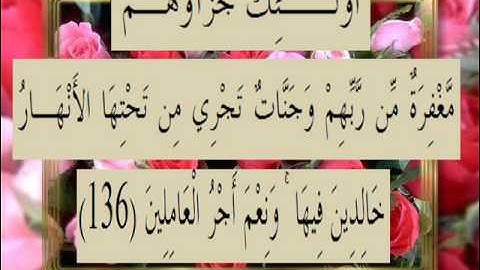 أُولَـــئِكَ جَزَاؤُهُـــم
مَّغْفِرَةٌ مِّن رَّبِّهِمْ وَجَنَّاتٌ تَجْرِي مِن تَحْتِهَا الأَنْهَـــارُ
خَالِدِينَ فِيهَا ۚ وَنِعْمَ أَجْرُ الْعَامِلِينَ (136)